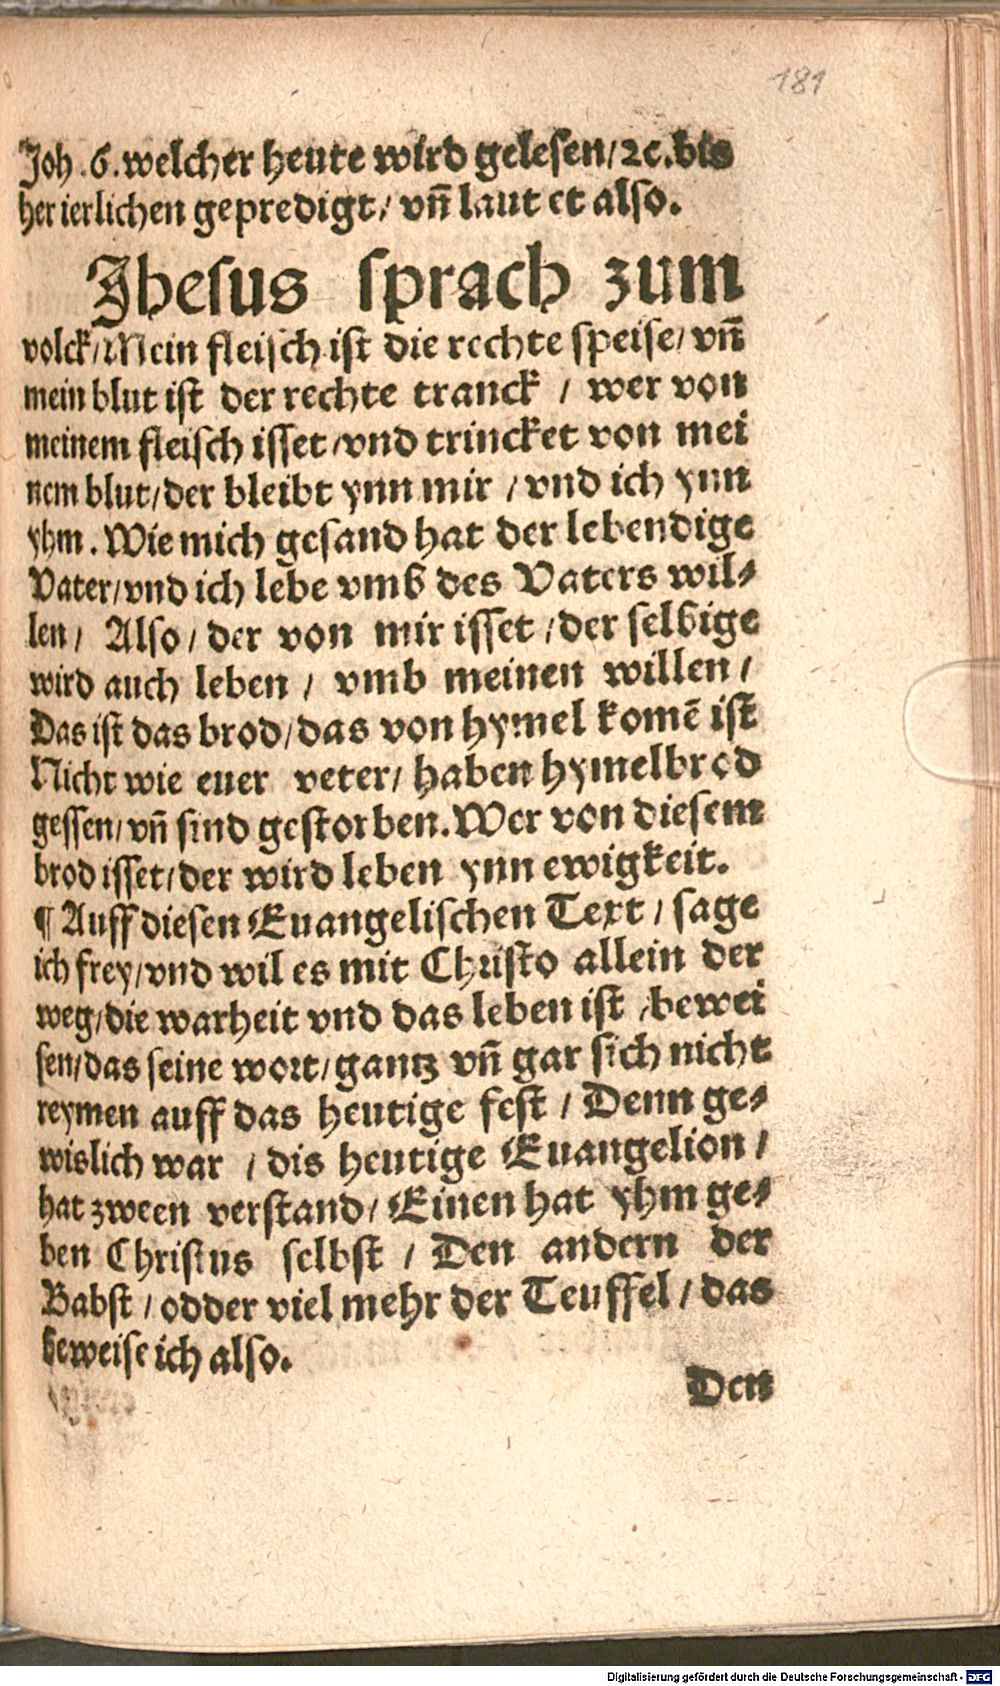 181
Joh. 6. welcher heute wird gelesen/ ꝛc. bis
her ierlichen gepredigt/ vñ laut et also.
Jhesus sprach zum
volck/ Mein fleisch ist die rechte speise/ vñ
mein blut ist der rechte tranck / wer von
meinem fleisch isset/ vnd trincket von mei
nem blut/ der bleibt ynn mir / vnd ich ynn
yhm. Wie mich gesand hat der lebendige
Vater/ vnd ich lebe vmb des Vaters wil-
len/ Also/ der von mir isset/ der selbige
wird auch leben / vmb meinen willen/
Das ist das brod/ das von hymel komē ist
Nicht wie euer veter/ haben hymelbrod
gessen/ vñ sind gestorben. Wer von diesem
brod isset/ der wird leben ynn ewigkeit.
¶ Auff diesen Euangelischen Text/ sage
ich frey/ vnd wil es mit Christo allein der
weg/ die warheit vnd das leben ist / bewei
sen/ das seine wort/ gantz vñ gar sich nicht
reymen auff das heutige fest / Denn ge-
wislich war / dis heutige Euangelion/
hat zween verstand/ Einen hat yhm ge-
ben Christus selbst / Den andern der
Babst / odder viel mehr der Teuffel/ das
beweise ich also.
Den
Digitalisierung gefördert durch die Deutsche Forschungsgemeinschaft - DFG